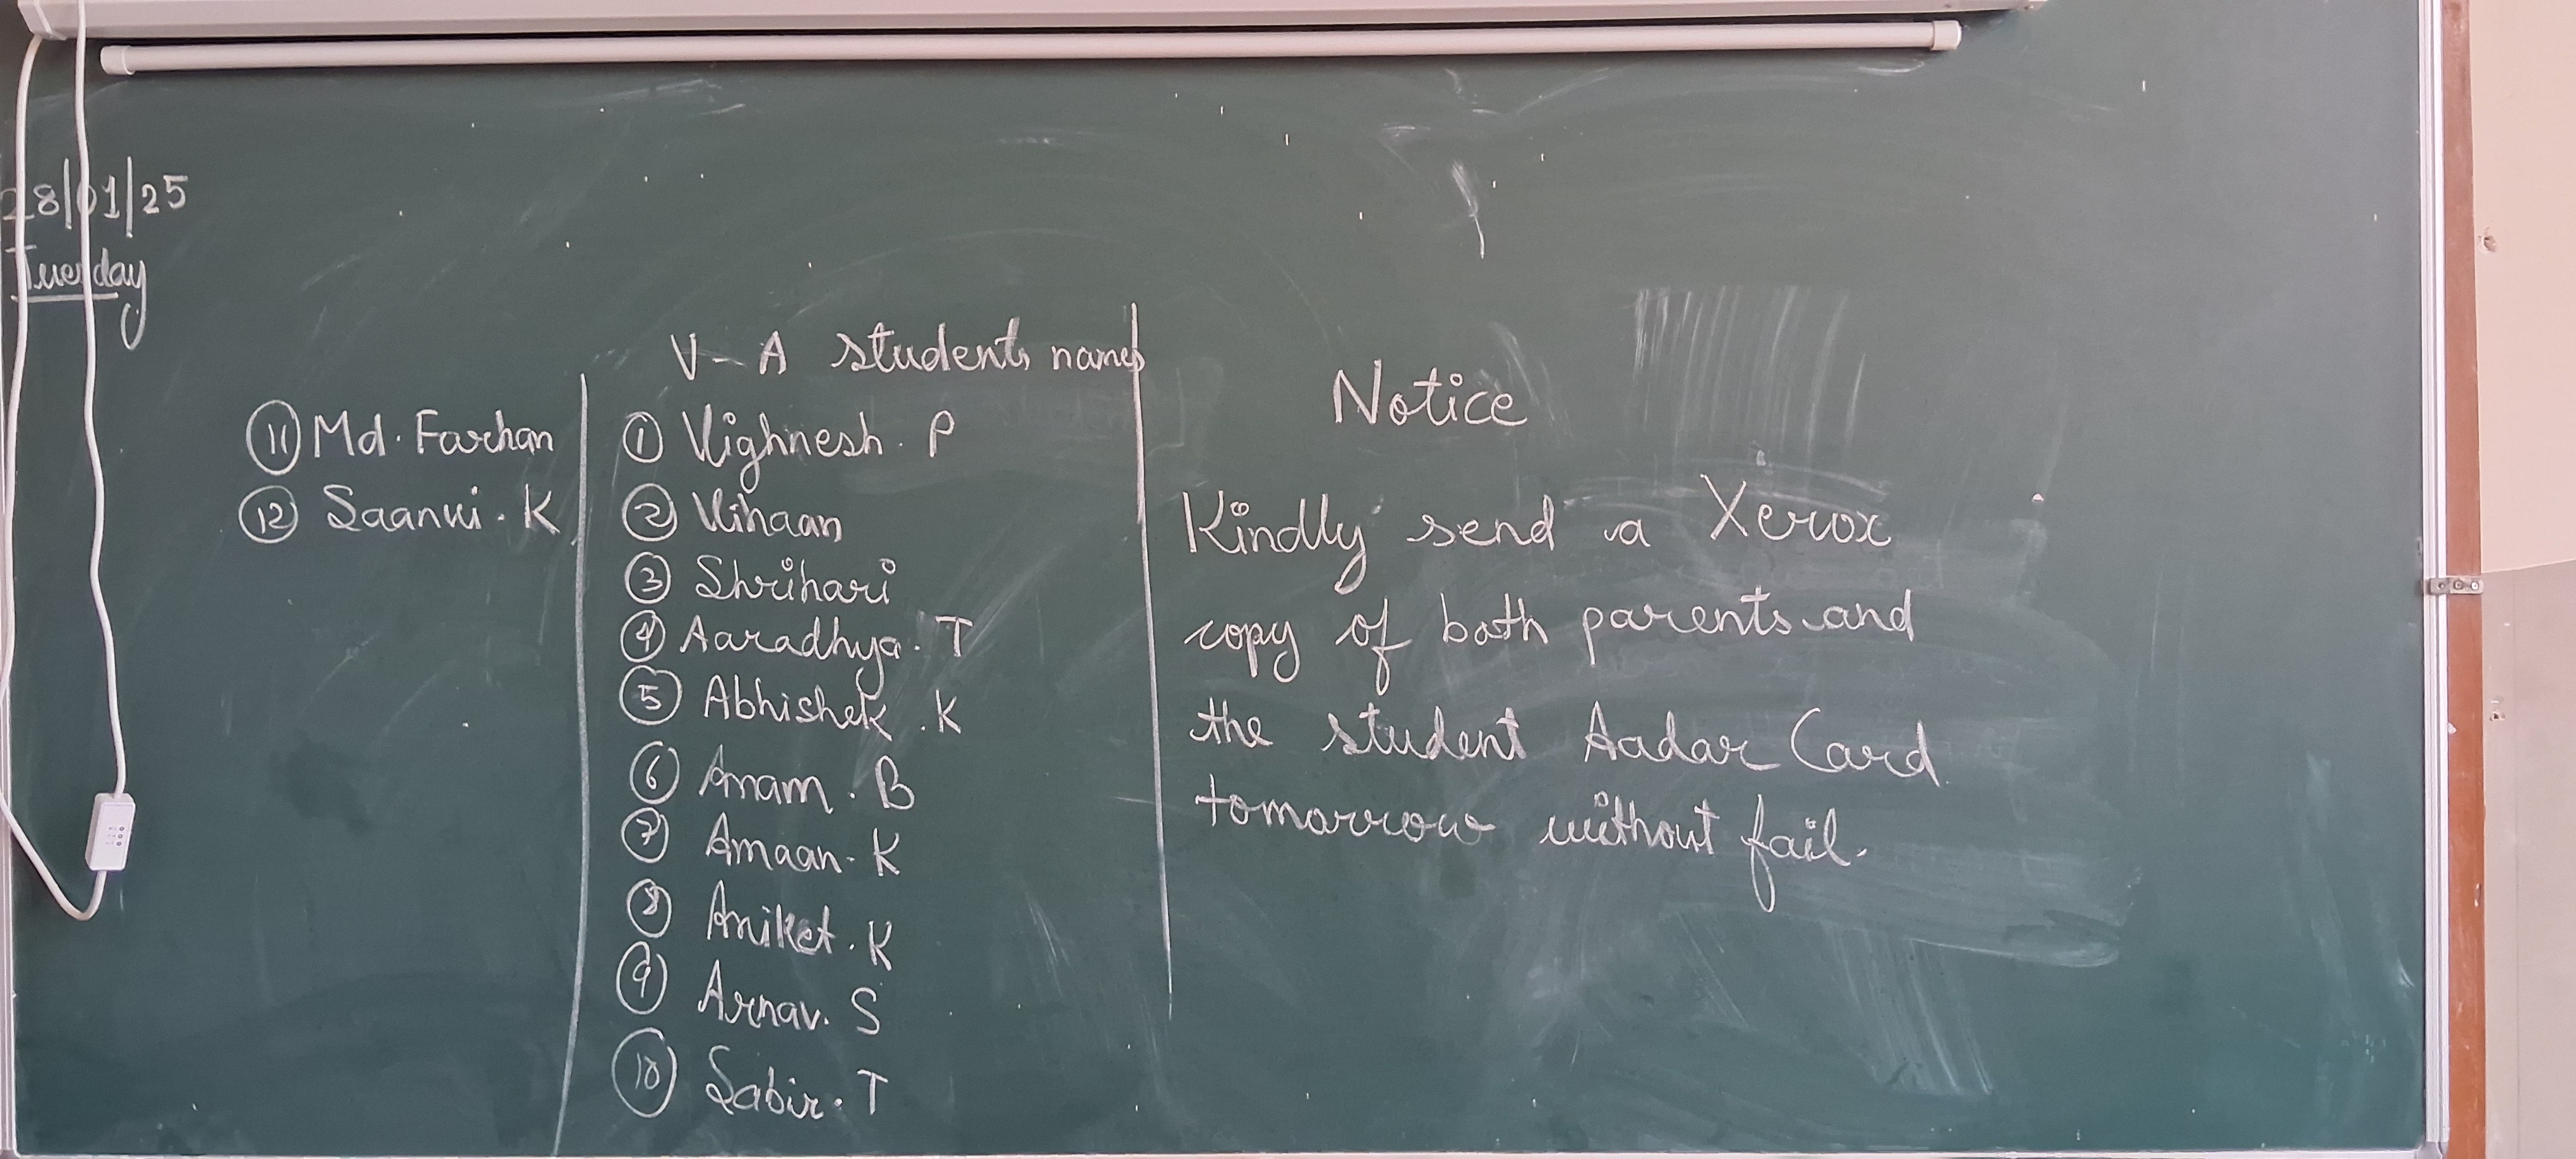 28/01/25
Tuesday
V-A students names
① Vighnesh. P
② Vihaan
③ Shrihari
④ Aaradhya. T
⑤ Abhishek. K
⑥ Anam. B
⑦ Amaan. K
⑧ Aniket. K
⑨ Arnav. S
⑩ Sabir. T
⑪ Md. Farhan
⑫ Saanvi. K
Notice
Kindly send a Xerox
copy of both parents and
the student Aadar Card
tomorrow without fail.